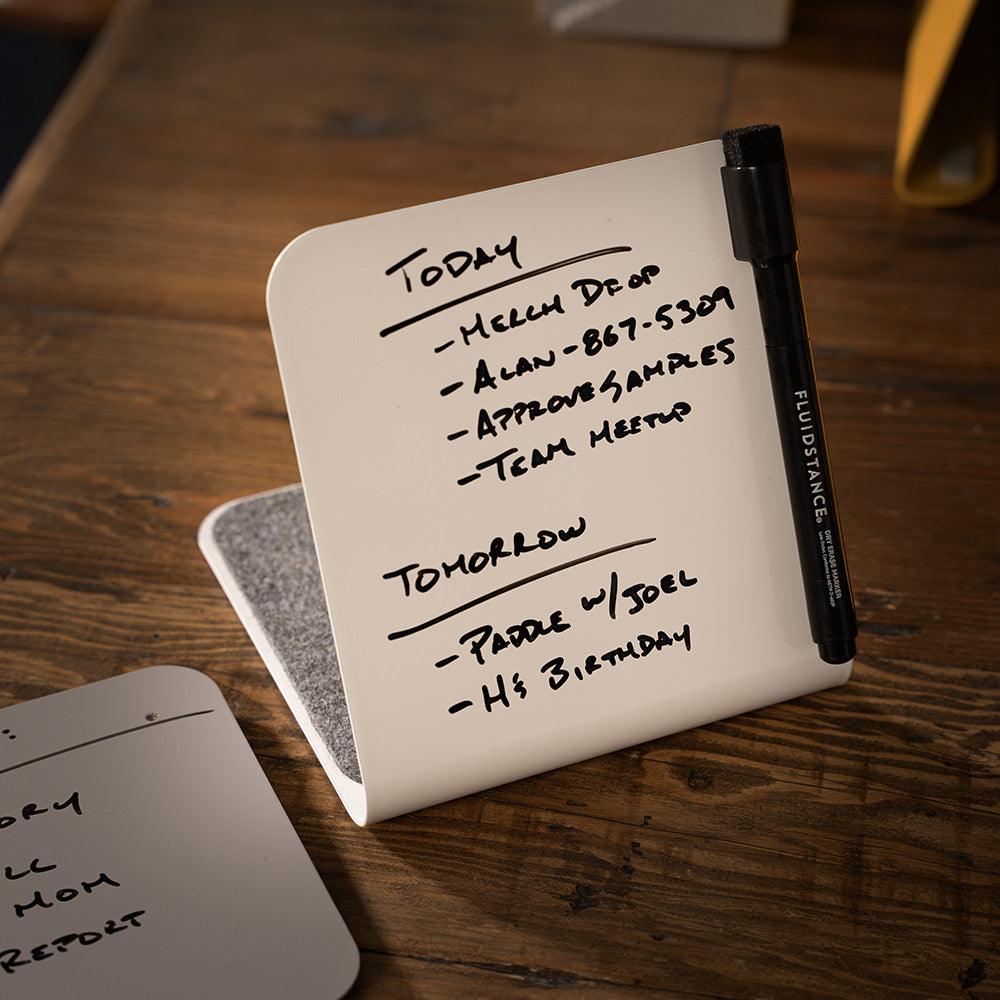 TODAY
- MERCH DROP
- ALAN - 867-5309
- APPROVE SAMPLES
- TEAM MEETUP
TOMORROW
- PADDLE W/JOEL
- H'S BIRTHDAY
FLUIDSTANCE®
DRY ERASE MARKER
Low Odor. Conforms to ASTM D-4236
:
ORY
LL
MOM
REPORT